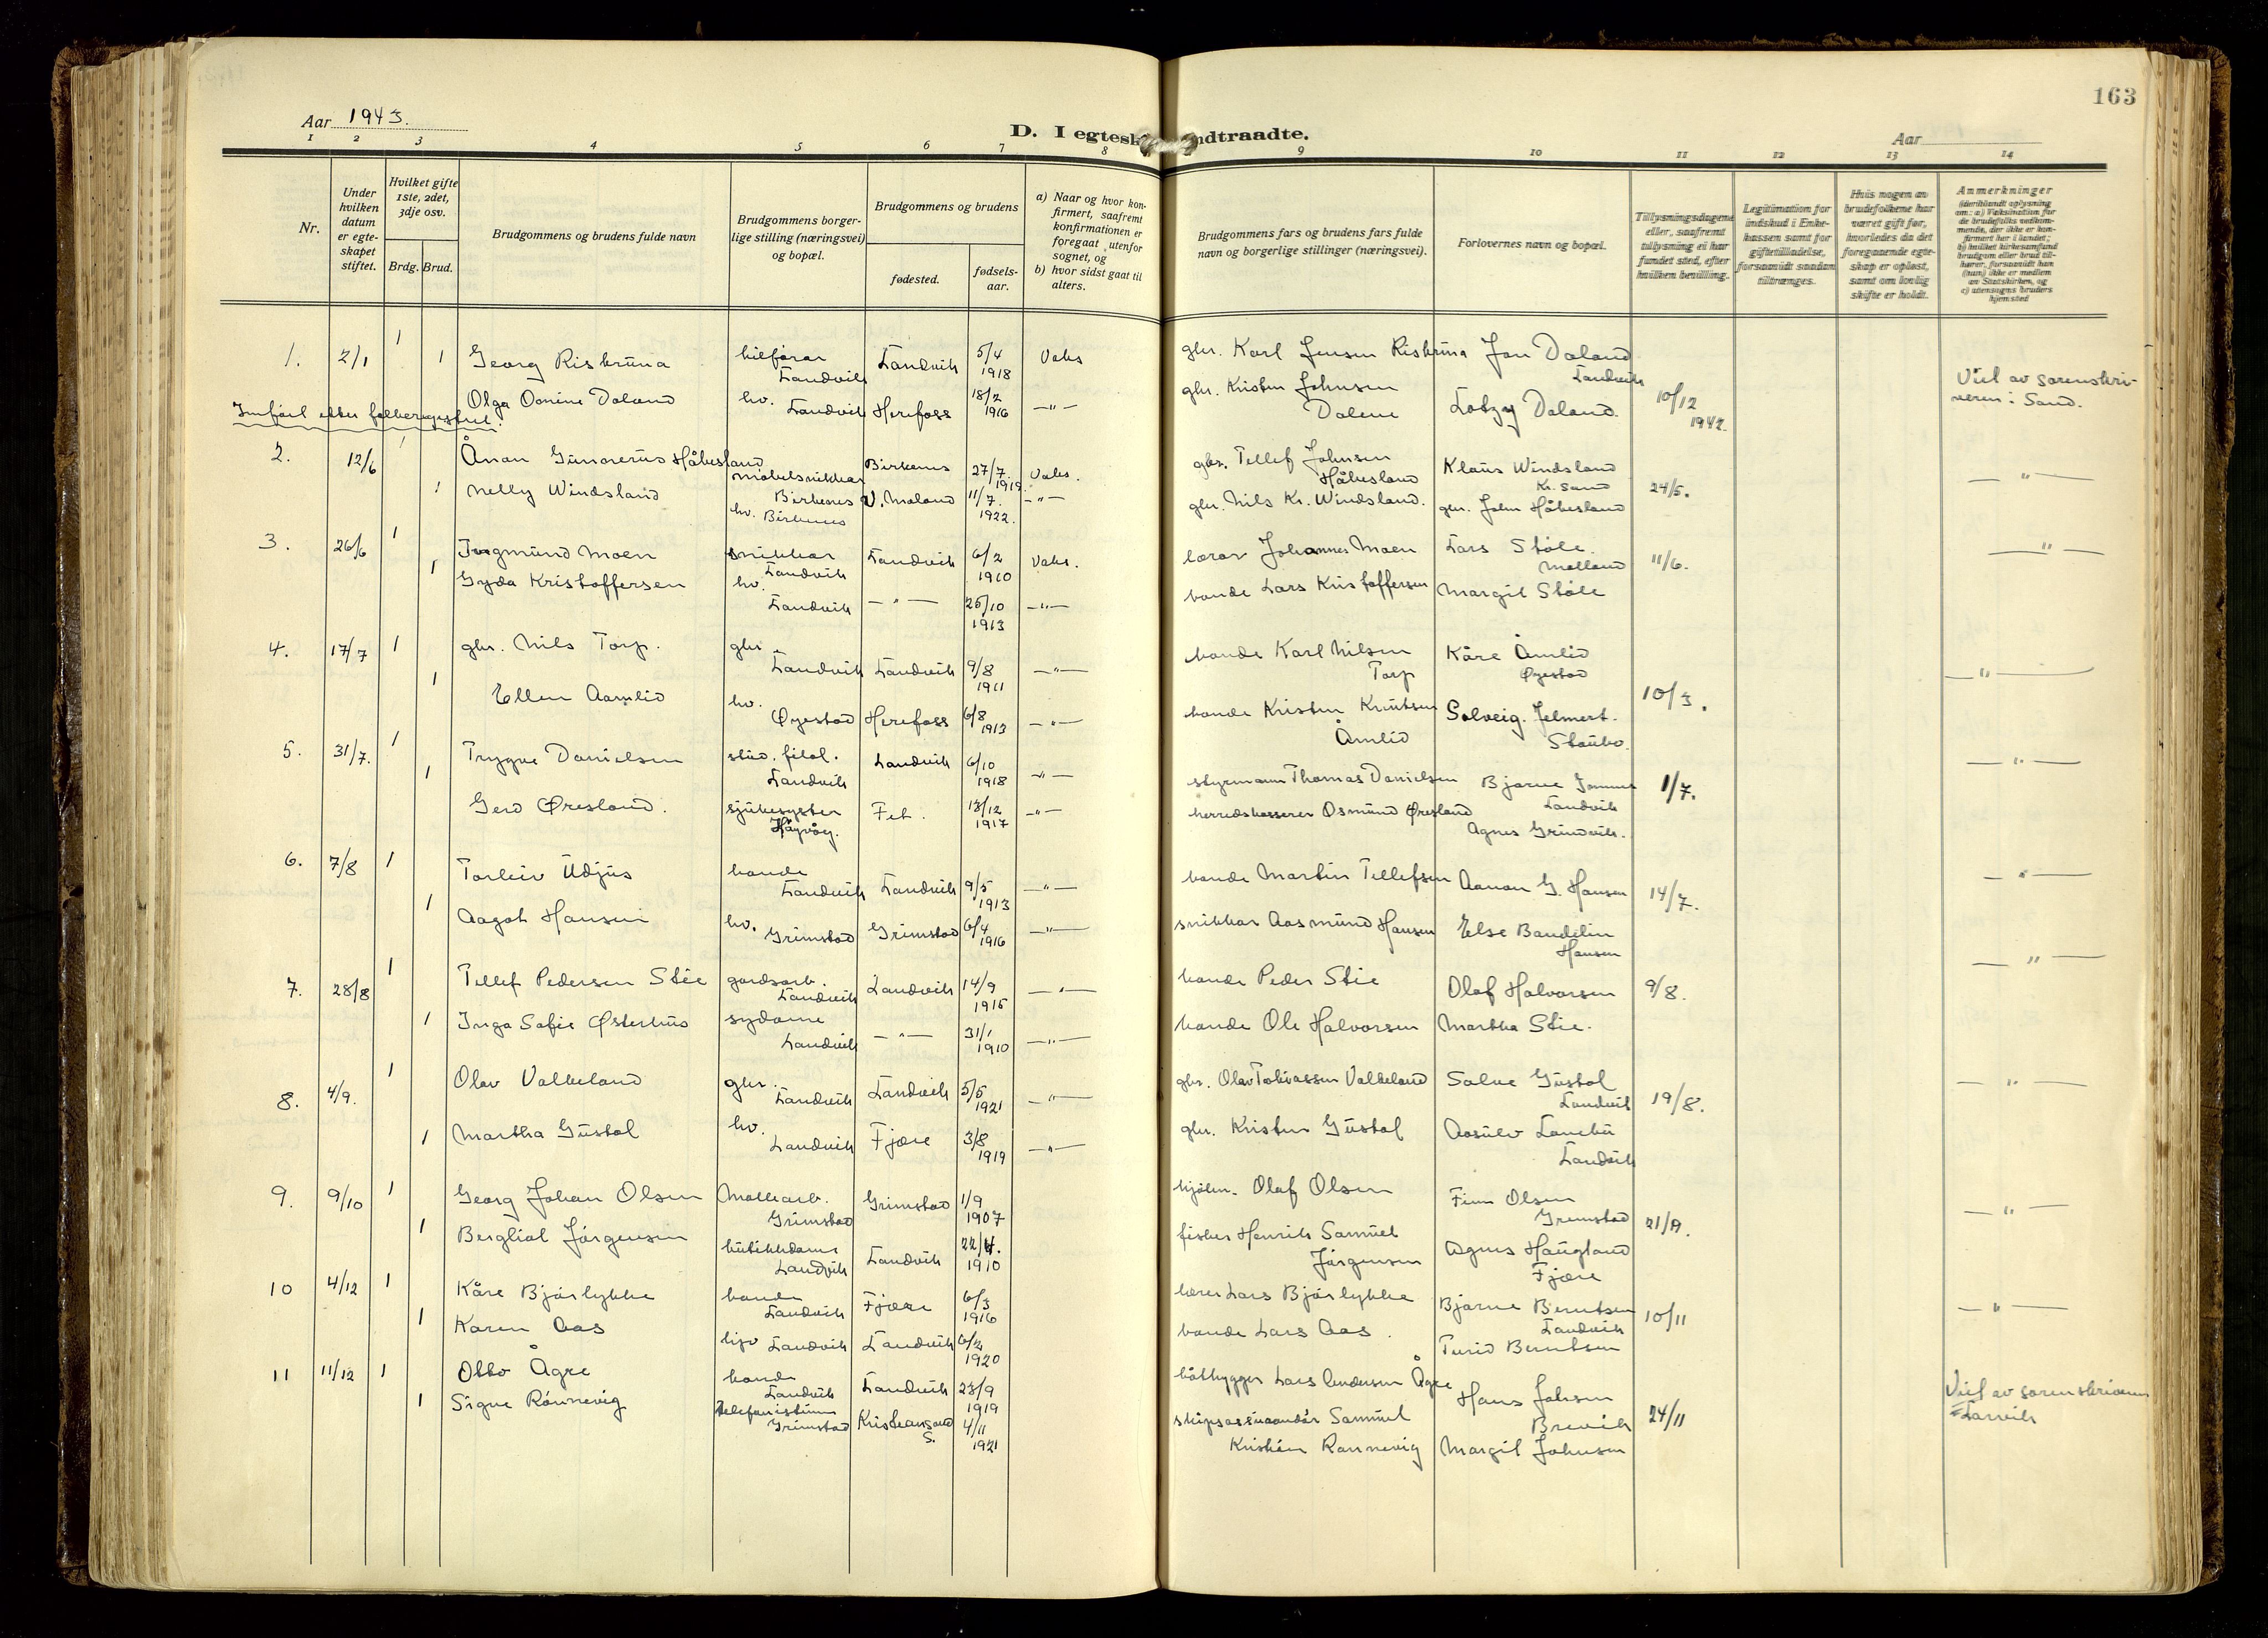 163
Aar 1943.
D. I egtesk ndtraadte.
Aar
1 2 3 4 5 6 7 8 9 10 11 12 13 14
Nr.
Under hvilken datum er egteskapet stiftet.
Hvilket gifte 1ste, 2det, 3dje osv.
Brdg. Brud.
Brudgommens og brudens fulde navn
Brudgommens borgerlige stilling (næringsvei) og bopæl.
Brudgommens og brudens
fødested.
fødselsaar.
a) Naar og hvor konfirmert, saafremt konfirmationen er foregaat utenfor sognet, og
b) hvor sidst gaat til alters.
Brudgommens fars og brudens fars fulde navn og borgerlige stillinger (næringsvei).
Forlovernes navn og bopæl.
Tillysningsdagene eller, saafremt tillysning ei har fundet sted, efter hvilken bevilling.
Legitimation for indskud i Enkekassen samt for giftetilladelse, forsaavidt saadan tiltrænges.
Hvis nogen av brudefolkene har været gift før, hvorledes da det foregaaende egteskap er opløst, samt om lovlig skifte er holdt.
Anmerkninger
1. 2/1 1 Georg Risbruna bilførar Landvik Landvik 5/4 1918 Vaks gbr. Karl Jensen Risbruna Jon Daland Landvik
1 Olga Oomine Daland hv. Landvik Herefoss 18/2 1916 —"— gbr. Kristen Johnsen Dalene Lotzy Daland. 10/12 1942. Viet av sorenskriveren i Sand.
Innført etter folkeregistret.
2. 12/6 1 Ånan Gunerius Håbesland møbelsnikkar Birkenes Birkenes 27/7. 1919. Vaks. gbr. Tellef Johnsen Håbesland Klaus Windsland Kr. Sand 24/5. —"—
1 Nelly Windsland hv. Birkenes V. Moland 11/7. 1922. —"— gbr. Nils Kr. Windsland. gbr. John Håbesland
3. 26/6 1 Ingmund Moen snikkar Landvik Landvik 6/2 1910 Vaks. lærar Johannes Moen Lars Støle. Molland 11/6. —"—
1 Gyda Kristoffersen hv. Landvik —"— 25/10 1913 —"— bonde Lars Kristoffersen Margit Støle
4. 17/7 1 gbr. Nils Torp. gbr. Landvik Landvik 9/8 1911 —"— bonde Karl Nilsen Torp Kåre Åmlid Øyestad 10/3. —"—
1 Ellen Aamlid hv. Øyestad Herefoss 6/8 1913 —"— bonde Kristen Knutsen Åmlid Solveig Jelmert. Staubo.
5. 31/7. 1 Trygve Danielsen stud. filol. Landvik Landvik 6/10 1918 —"— styrmann Thomas Danielsen Bjarne Landvik 1/7. —"—
1 Gerd Øresland. sjukesyster Høvåg. Fet. 13/12 1917 —"— herredskasserer Osmund Øresland Agnes Grundvik.
6. 7/8 1 Torleiv Udjus bonde Landvik Landvik 9/5 1913 —"— bonde Martin Tellefsen Aanan G. Hansen 14/7. —"—
1 Aagot Hansen hv. Grimstad Grimstad 6/4 1916 —"— snikkar Aasmund Hansen Else Bandelin Hansen
7. 28/8 1 Tellef Pedersen Stie gardsarb. Landvik Landvik 14/9 1915 —"— bonde Peder Stie Olaf Halvorsen 9/8. —"—
1 Inga Sofie Østerhus sydame Landvik —"— 31/1 1910 —"— bonde Ole Halvorsen Martha Stie.
8. 4/9. 1 Olav Valkeland gbr. Landvik Landvik 5/5 1921 —"— gbr. Olav Valkeland Salve Gustøl Landvik 19/8. —"—
1 Martha Gustøl hv. Landvik Fjære 3/8 1919 —"— gbr. Kristen Gustøl Aasulv Landvik
9. 9/10 1 Georg Johan Olsen Grimstad Grimstad 1/9 1907 Olaf Olsen Finn Olsen Grimstad 21/9. —"—
1 Bergliot Jørgensen butikkdame Landvik Landvik 22/4. 1910 fisker Henrik Samuel Jørgensen Agnes Haugland Fjære
10 4/12 1 Kåre Bjørlykke bonde Landvik Fjære 6/3 1916 lærer Lars Bjørlykke Bjarne Berntsen Landvik 10/11 —"—
1 Karen Aas Landvik Landvik 6/2 1920 bonde Lars Aas. Turid Berntsen
11 11/12 1 Otto Ågre bonde Landvik Landvik 23/9 1919 båtbygger Lars Andersen Ågre Hans Johnsen Brevik 24/11 Viet av sorenskriveren Larvik
1 Signe Rønnevig Grimstad Kristiansand S. 4/11 1921 Samuel Kristian Rønnevig Margit Johnsen